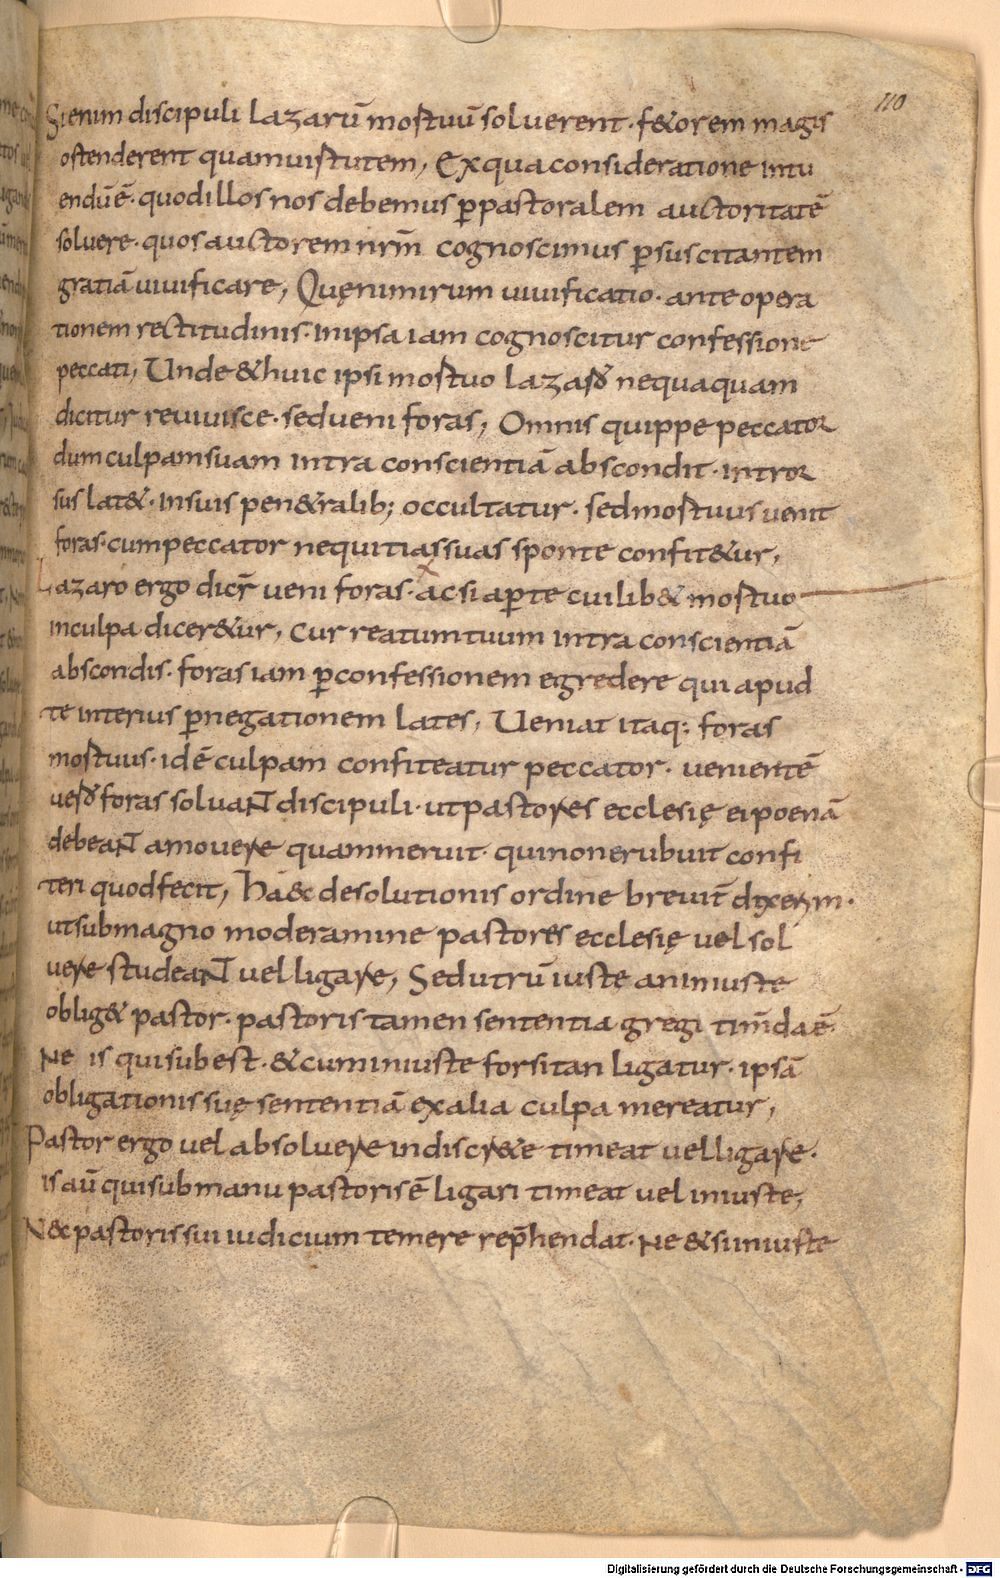 110
Sienim discipuli lazarū mortuū soluerent · f&orem magis
ostenderent quamuirtutem, Exquaconsideratione intu
endū ē · quodillos nos debemus ꝑpastoralem auctoritatē
soluere · quos auctorem nrm̄ cognoscimus ꝑsuscitantem
gratiā uiuificare, Quęnimirum uiuificatio · ante opera
tionem rectitudinis · inipsa iam cognoscitur confessione
peccati, Unde &huic ipsi mortuo lazaro nequaquam
dicitur reuiuisce · sedueni foras, Omnis quippe peccator
dumculpamsuam intra conscientiā abscondit · intror
sus lat& · insuis pen&ralib; occultatur · sedmortuus uenit
foras · cumpeccator nequitiassuas sponte confit&ur,
Lazaro ergo dicr̄ ueni foras · acsi aꝑte cuilib& mortuo
inculpa dicer&ur, Cur reatumtuum intra conscientiā
abscondis · foras iam ꝑconfessionem egredere qui apud
te interius ꝑnegationem lates, Ueniat itaq; foras
mortuus · idē culpam confiteatur peccator · uenientē
uero foras soluant discipuli · utpastores ecclesię ei poenā
debeant amouere quammeruit · quinonerubuit confi
teri quodfecit, Haec desolutionis ordine breuit̄ dixerim ·
utsubmagno moderamine pastores ecclesię uel sol
uere studeant uel ligare, Sedutrū iuste aniniuste
oblig& pastor · pastoris tamen sententia gregi tim̄da ē ·
Ne is quisubest · &cuminiuste forsitan ligatur · ipsā
obligationis suę sententiā exalia culpa mereatur,
Pastor ergo uel absoluere indiscr&e timeat uelligare ·
is aū quisubmanu pastoris ē ligari timeat uel iniuste,
N&c pastoris sui iudicium temere rep̄hendat · Ne &siiniuste
Digitalisierung gefördert durch die Deutsche Forschungsgemeinschaft - DFG